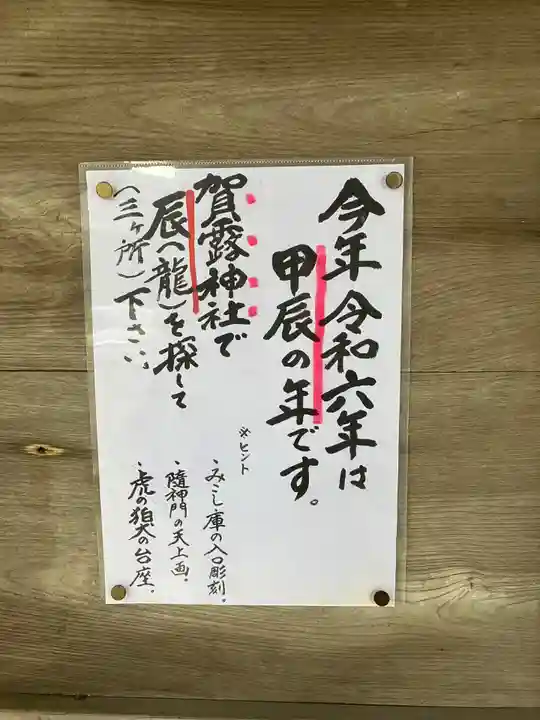 今年 令和六年は
甲辰の年です。
賀露神社で
辰(龍)を探して
(三ヶ所)下さい。
※ヒント
・みこし庫の入口彫刻。
・随神門の天上画。
・虎の狛犬の台座。